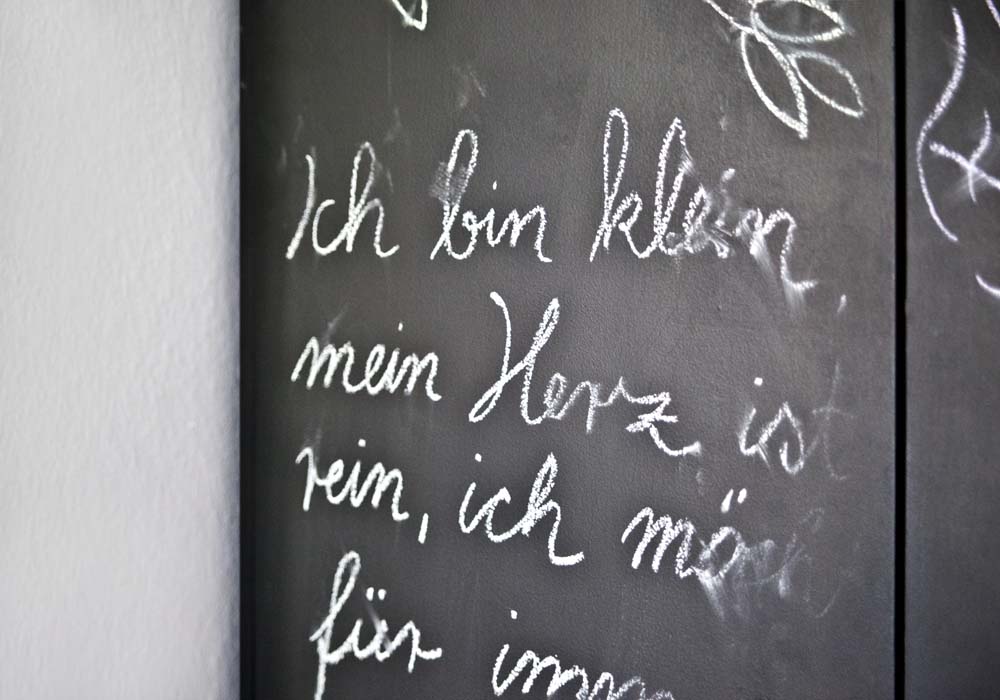 Ich bin klein,
mein Herz ist
rein, ich
für